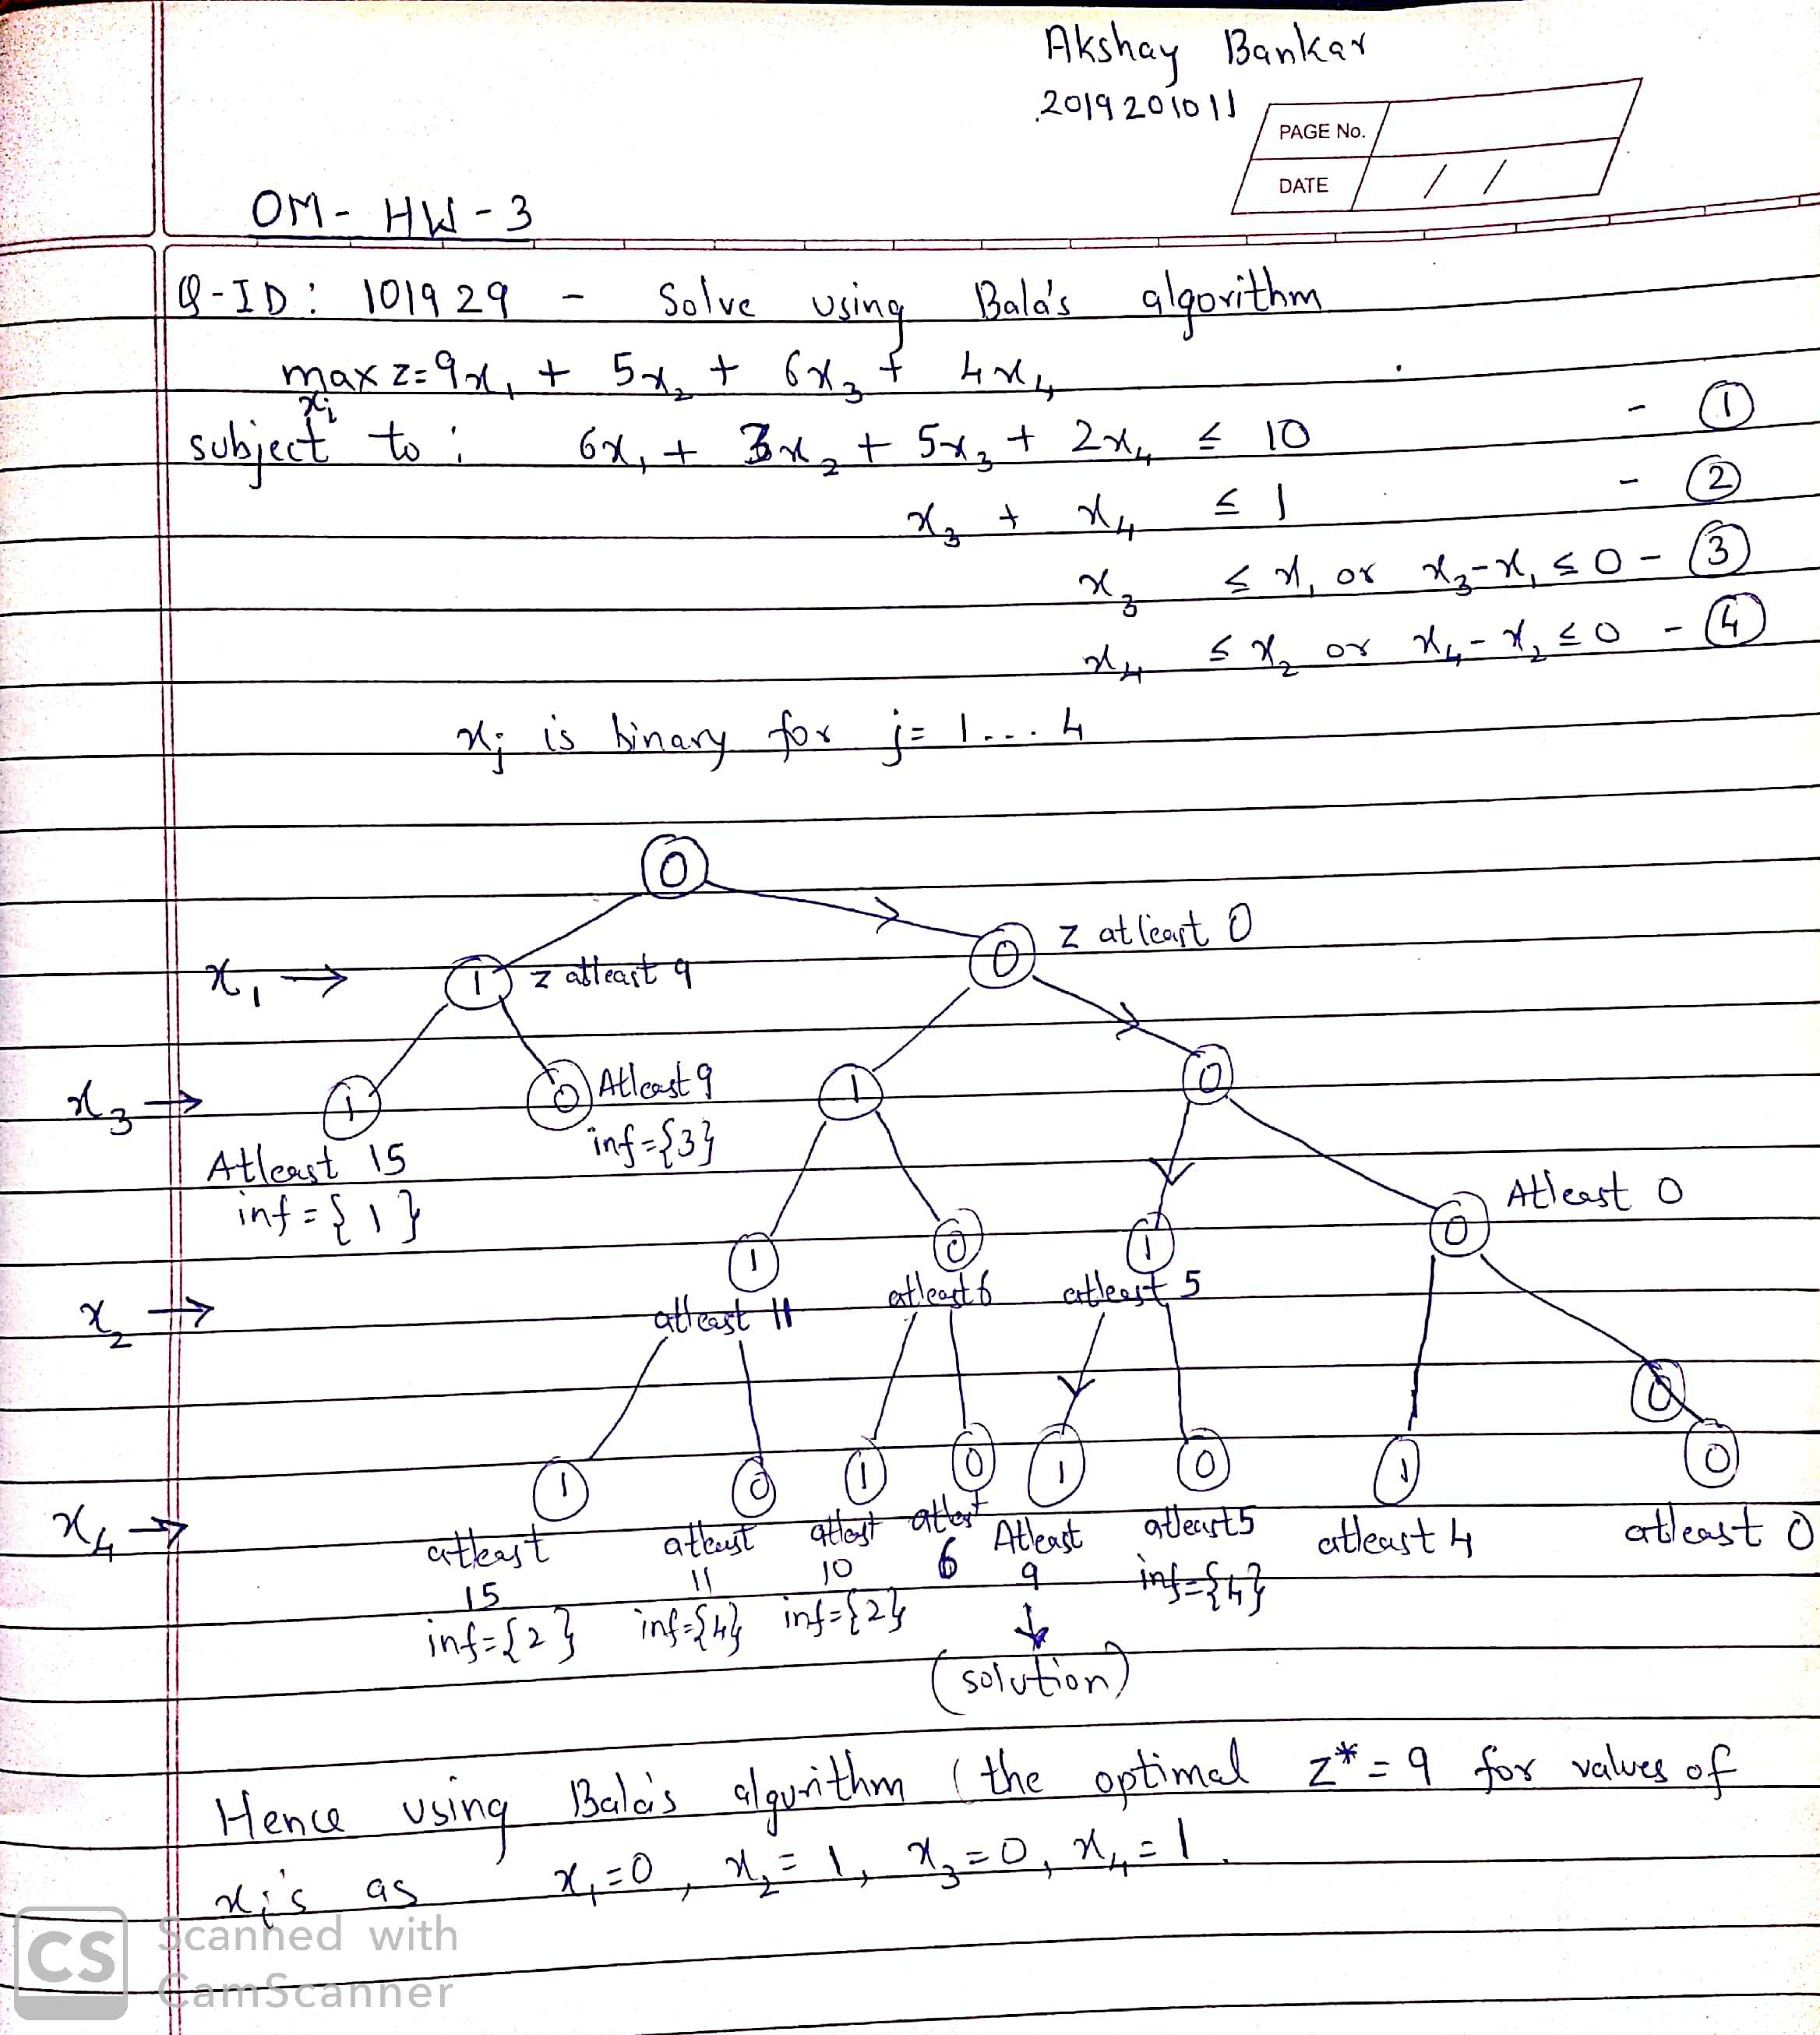 Akshay Bankar
2019201011
PAGE No.
DATE / /
OM - HW - 3
Q-ID: 101929 - Solve using Bala's algorithm
max z = 9x₁ + 5x₂ + 6x₃ + 4x₄
xᵢ
subject to : 6x₁ + 3x₂ + 5x₃ + 2x₄ ≤ 10 - ①
x₃ + x₄ ≤ 1 - ②
x₃ ≤ x₁ or x₃-x₁ ≤ 0 - ③
x₄ ≤ x₂ or x₄-x₂ ≤ 0 - ④
xⱼ is binary for j = 1 ... 4
0
0 z atleast 0
x₁ → 1 z atleast 9
x₃ → 1 0 Atleast 9 1 0
inf={3}
Atleast 15
inf = {1}
0 Atleast 0
1 0 1
x₂ → atleast 11 atleast 6 atleast 5
0
1 0 1 0 1 0 1 0
x₄ → atleast 15 atleast 11 atleast 10 atleast 6 Atleast 9 atleast 5 atleast 4 atleast 0
inf={2} inf={4} inf={2} inf={4}
(solution)
Hence using Bala's algorithm (the optimal z* = 9 for values of
xᵢ's as x₁=0, x₂=1, x₃=0, x₄=1.
CS Scanned with
CamScanner